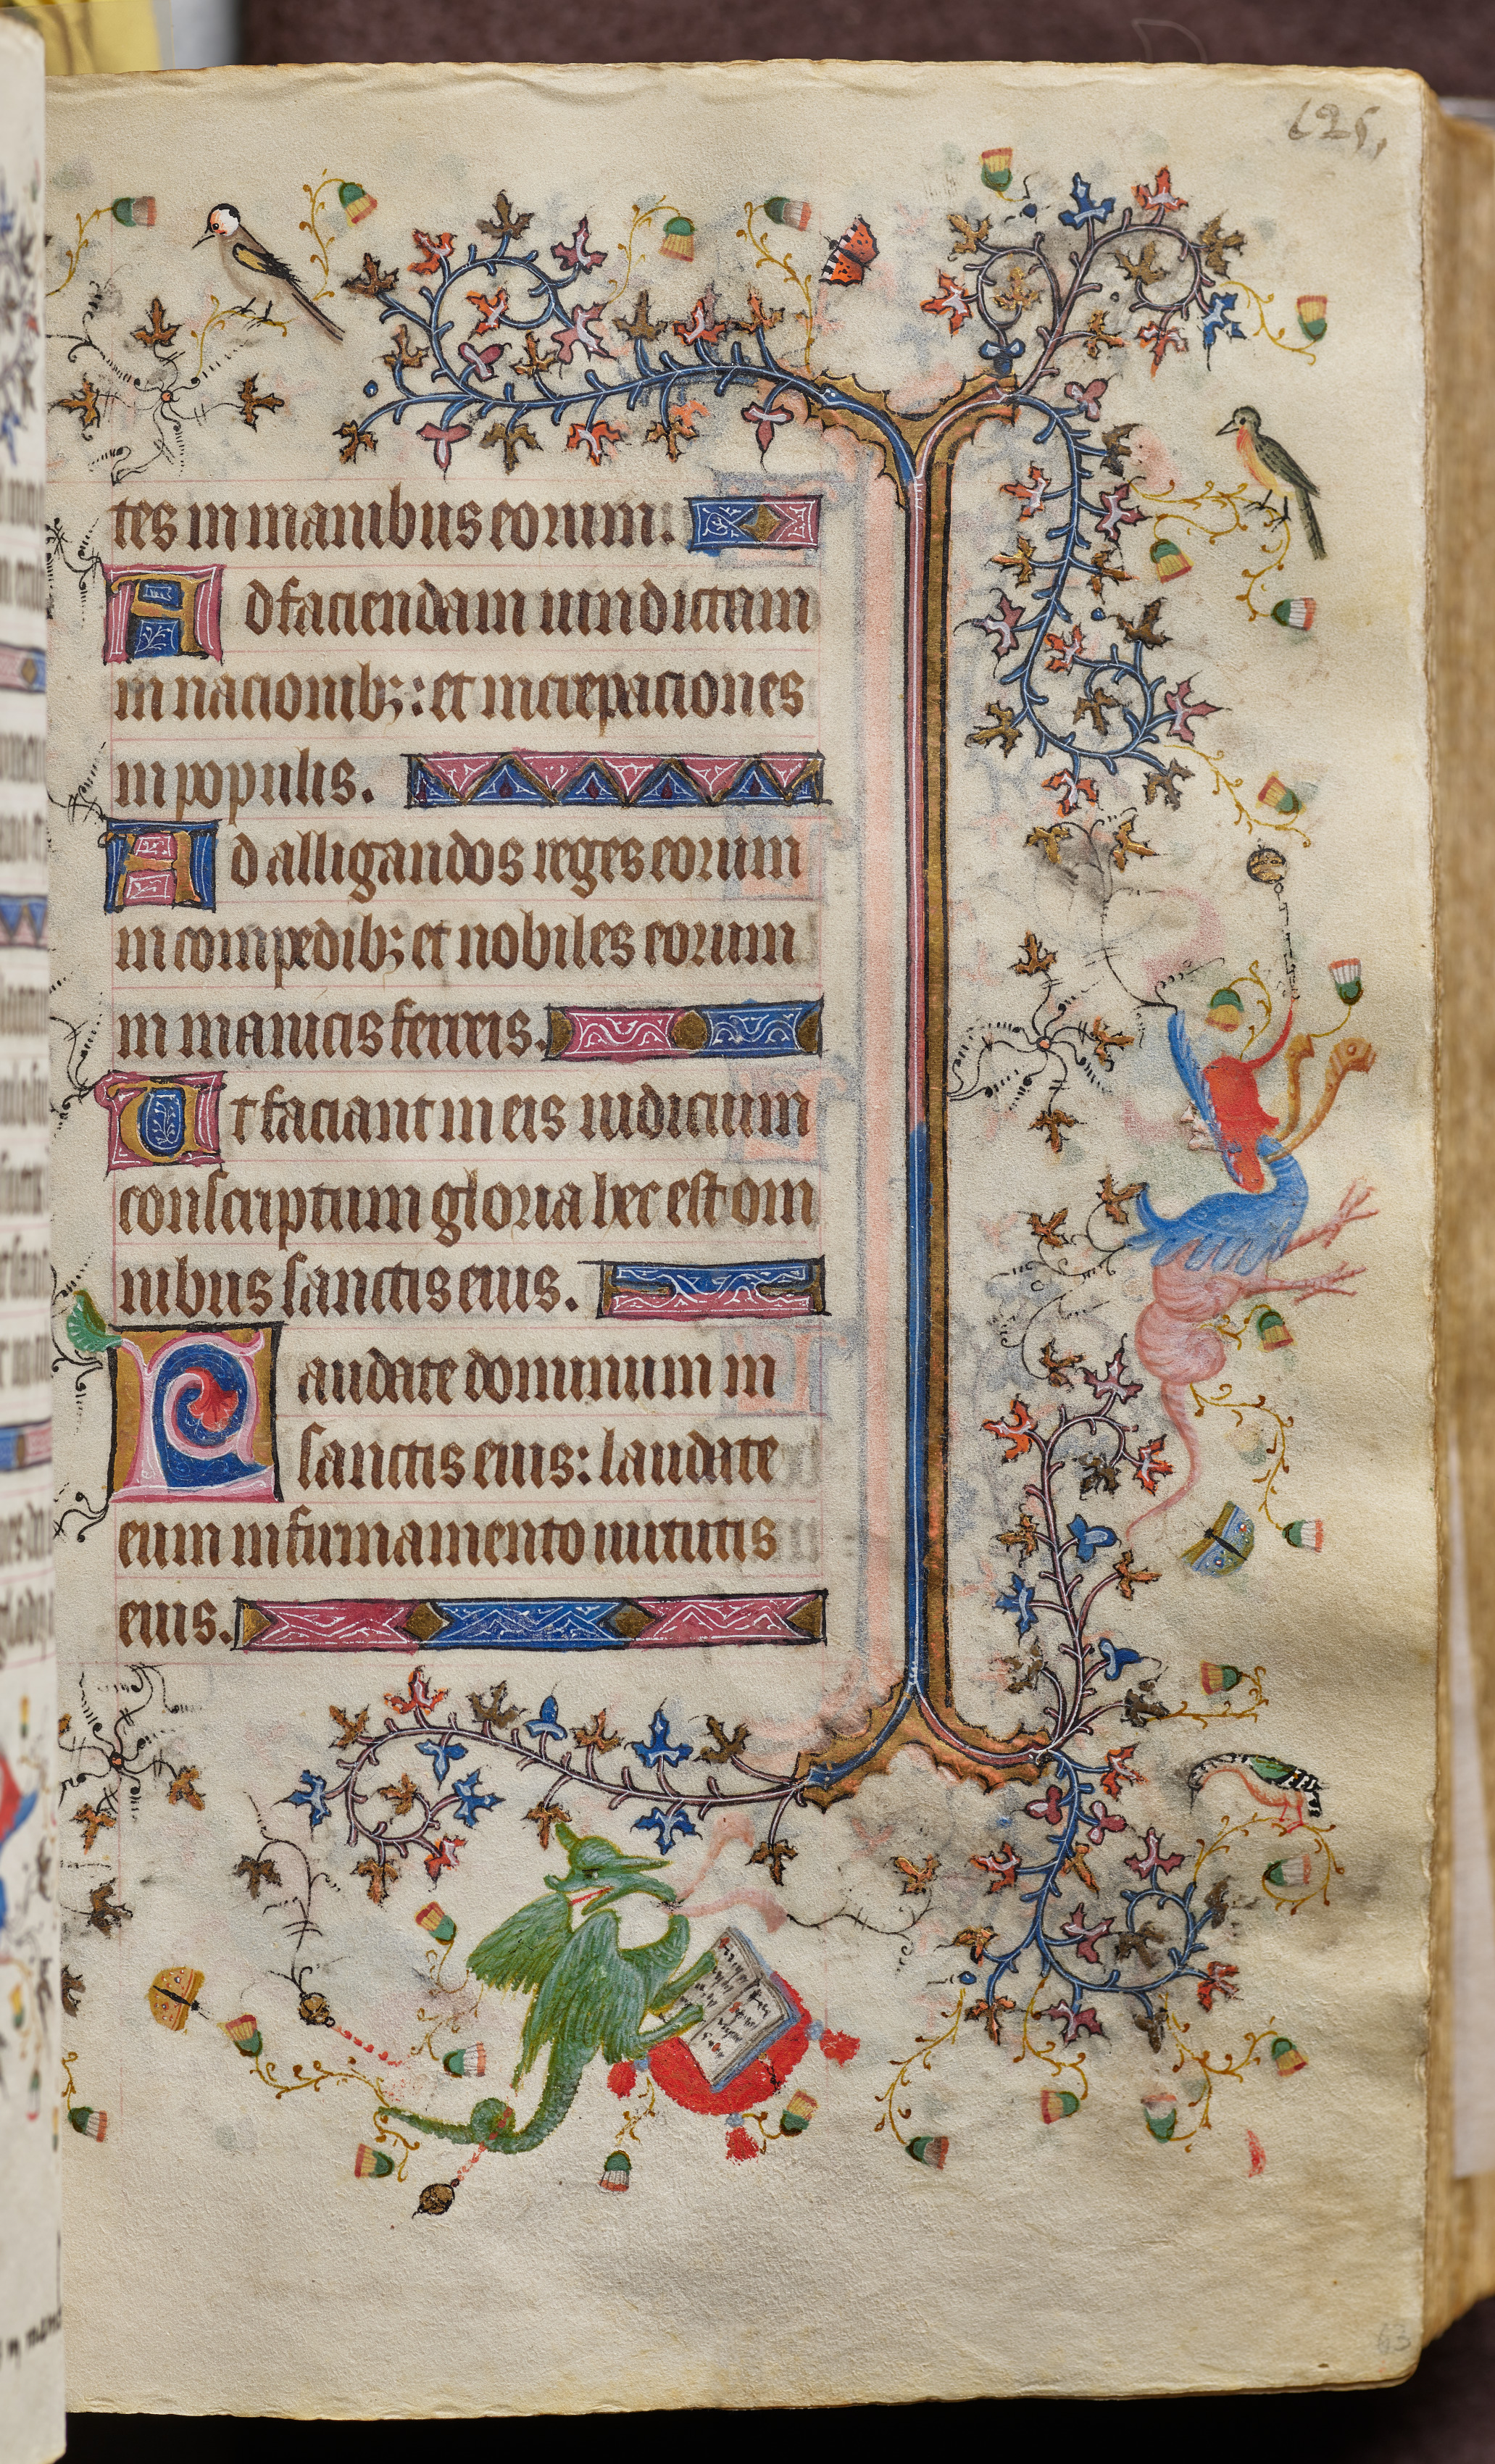 625,
tes in manibus eorum.
Ad faciendam uindictam
in nacionibꝫ: et increpaciones
in populis.
Ad alligandos reges eorum
in compedibꝫ et nobiles eorum
in manicis ferreis.
Ut faciant in eis iudicium
conscriptum gloria hec est om
nibus sanctis eius.
Laudate dominum in
sanctis eius: laudate
eum in firmamento uirtutis
eius.
63